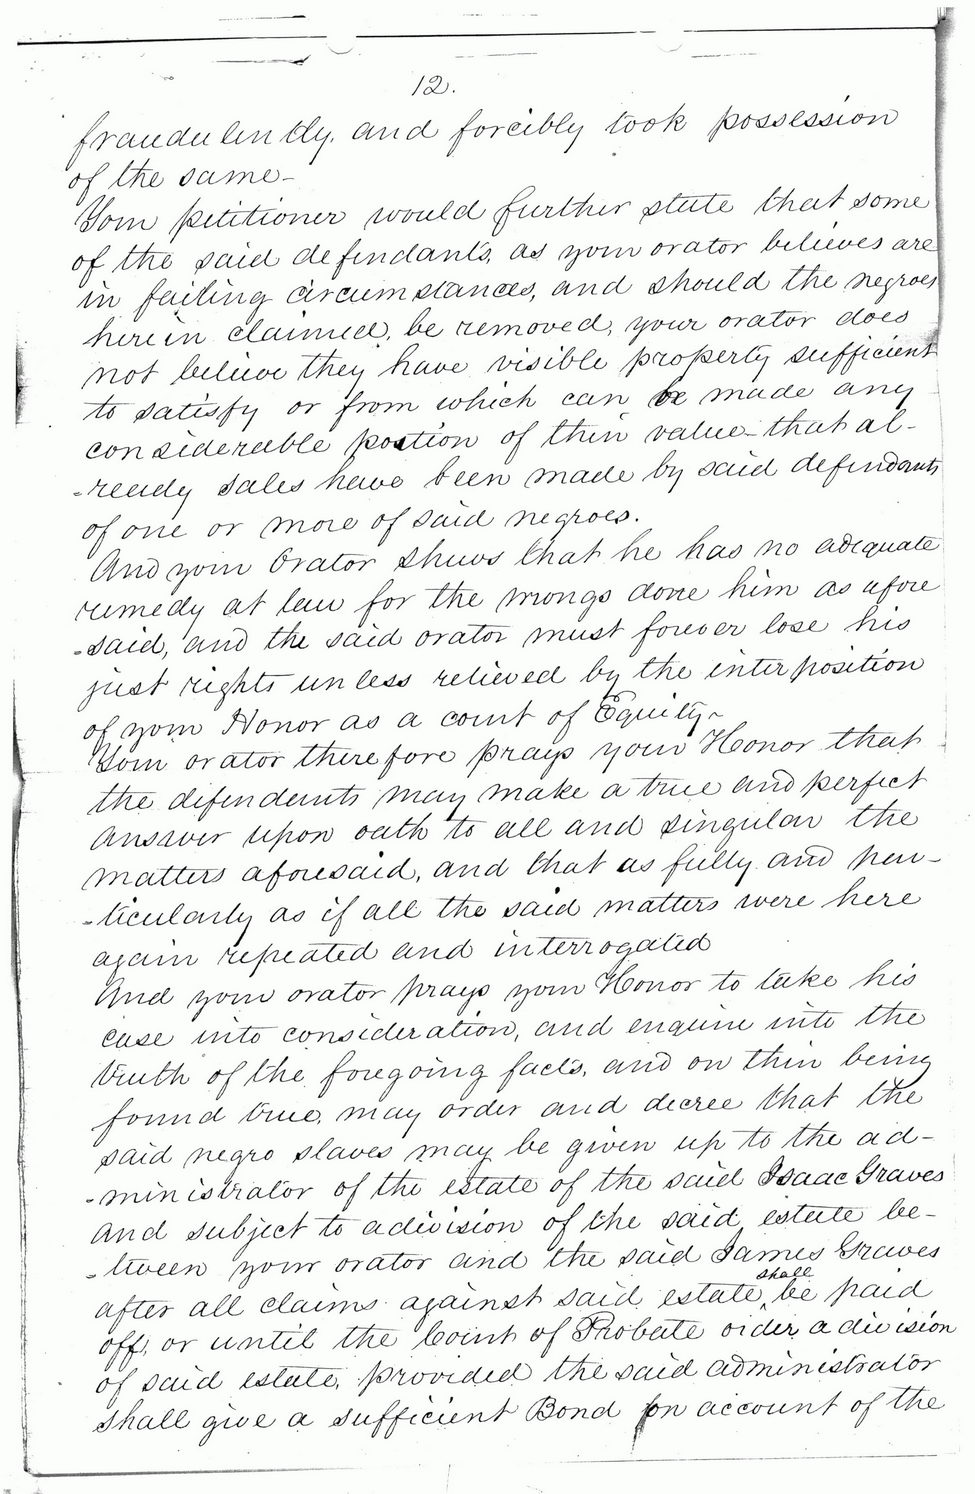 12.
fraudulently, and forcibly took possession
of the same-
Your petitioner would further state that some
of the said defendants, as your orator believes are
in failing circumstances, and should the negroes
herein claimed, be removed, your orator does
not believe they have visible property sufficient
to satisfy or from which can be made any
considerable postion of their value - that al-
-ready sales have been made by said defendants
of one or more of said negroes.
And your Orator shews that he has no adequate
remedy at law for the wrongs done him as afore
-said, and the said orator must forever lose his
just rights unless relieved by the interposition
of your Honor as a court of Equity-
Your orator therefore prays your Honor that
the defendants may make a true and perfect
answer upon oath to all and singular the
matters aforesaid, and that as fully and par-
-ticularly as if all the said matters were here
again repeated and interrogated
And your orator prays your Honor to take his
case into consideration, and enquire into the
truth of the foregoing facts, and on their being
found true, may order and decree that the
said negro slaves may be given up to the ad-
-ministrator of the estate of the said Isaac Graves
and subject to a division of the said estate be-
-tween your orator and the said James Graves
after all claims against said estate, shall be paid
off, or until the Court of Probate order a division
of said estate, provided the said administrator
shall give a sufficient Bond on account of the